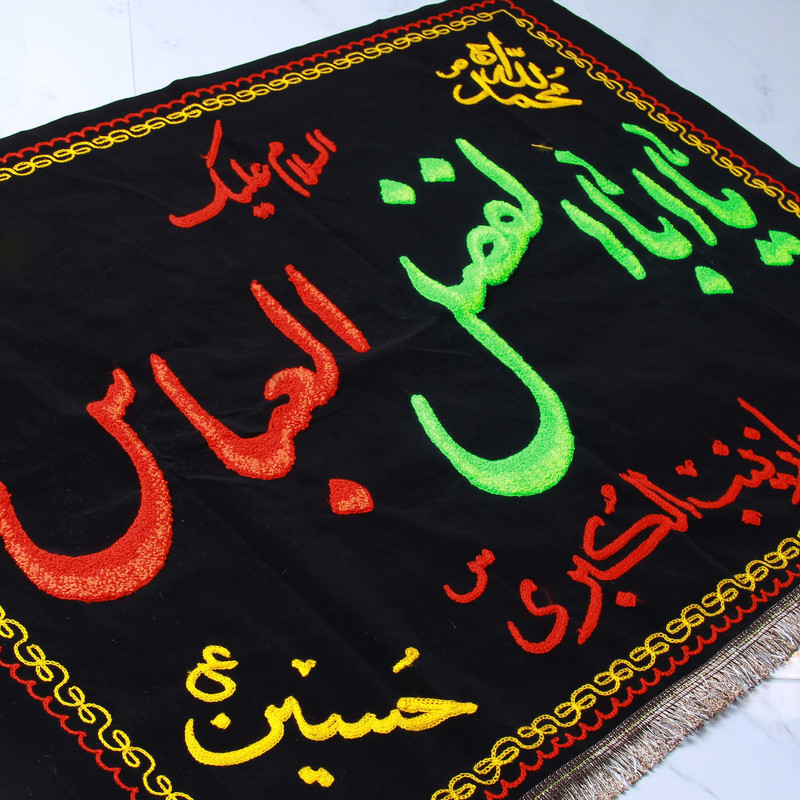 محمد
السلام علیک
یا اباالفضل العباس
یا زینب الکبری س
حسین ع